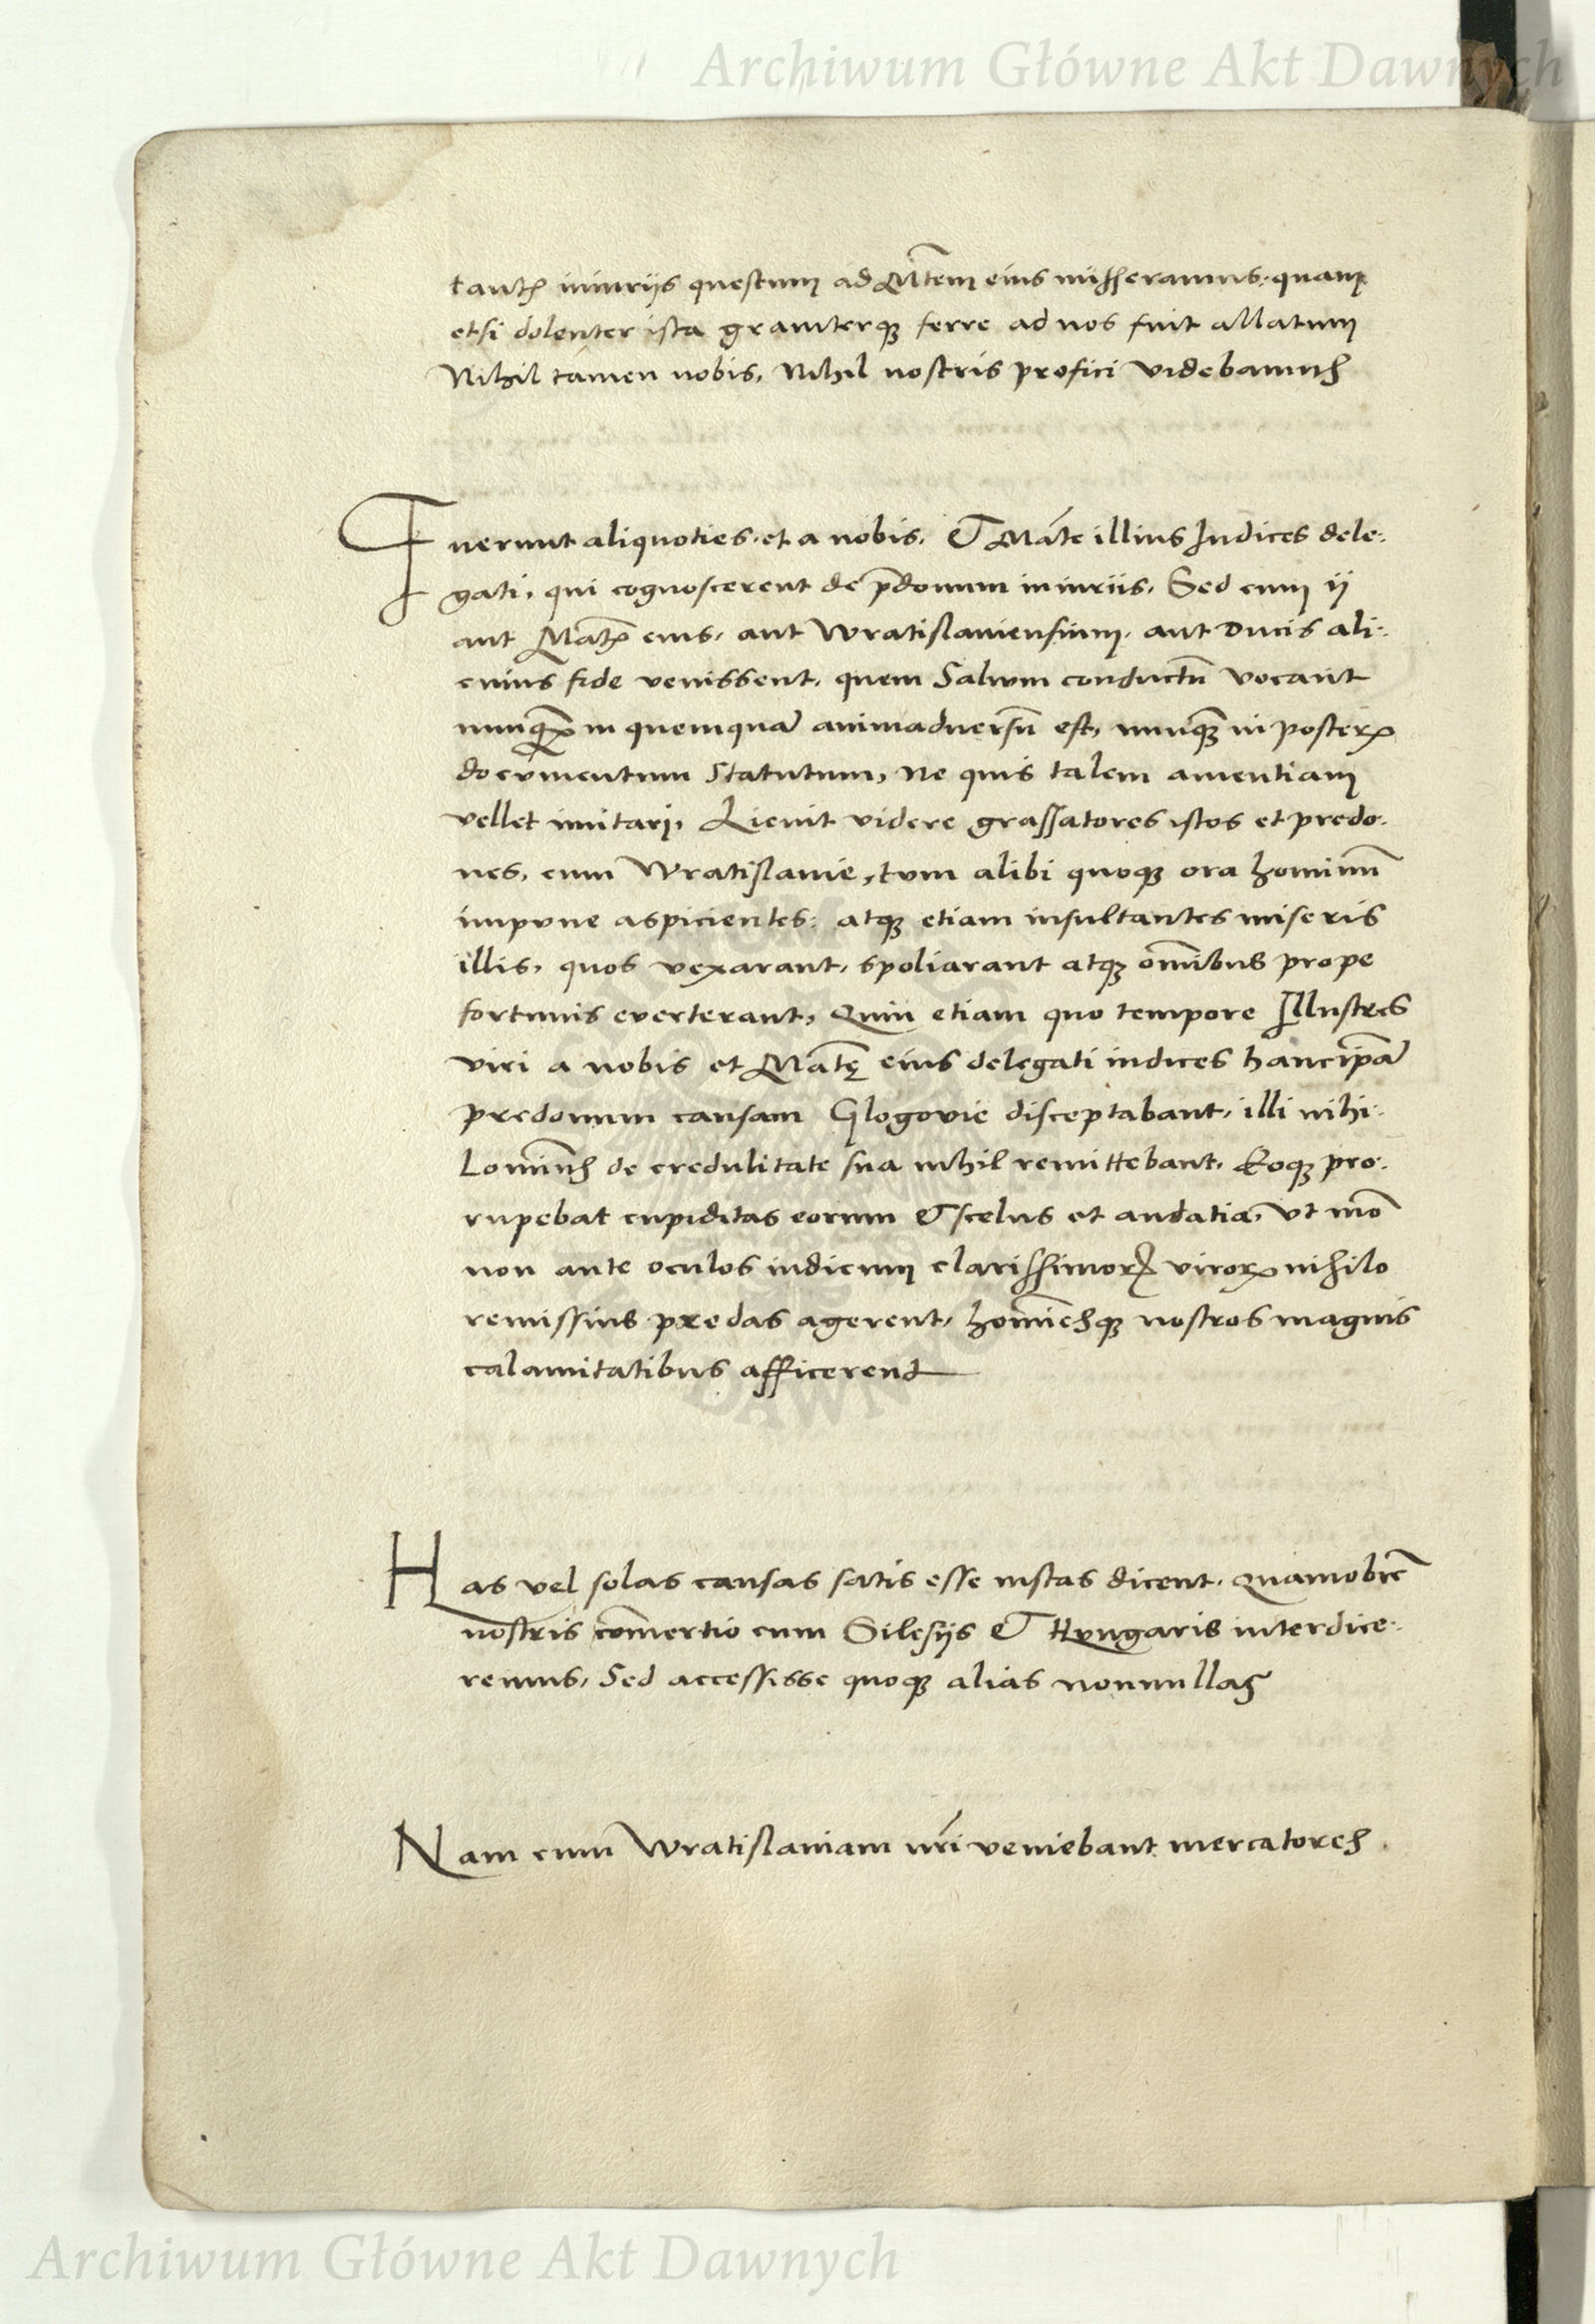 Archiwum Główne Akt Dawnych
tantꝭ iniuriis questum ad Mͭtem eius misseramus. quam
etsi dolenter ista grauiterqꝫ ferre ad nos fuit allatum
Nihil tamen nobis, Nihil nostris profici videbamus
Fuerunt aliquoties. et a nobis, & Mát̃e illius Iudices dele:
gati, qui cognoscerent de p̃donum iniuriis, Sed cum ij
aut Mat̃ꝭ eius, aut Wratislauiensium, aut Ducis ali:
cuius fide venissent, quem Salvum conductũ vocant
nunq̃ꝫ in quemquã animaduersũ est, nunq̃ꝫ in posteꝝ
documentum statutum, Ne quis talem amentiam
vellet imitari, Licuit videre grassatores istos et predo:
nes, cum Wratislauie, tvm alibi quoqꝫ ora hominũ
impvne aspicientes: atqꝫ etiam insultantes miseris
illis, quos vexarant, spoliarant atqꝫ om̃ibus prope
fortunis everterant, Quin etiam quo tempore Illustres
viri a nobis et Mat̃ę eius delegati iudices hanc ip̃ã
predonum causam Glogovie disceptabant, illi nihi:
Lominus de credulitate sua nihil remittebant, Eoqꝫ pro:
rupebat cupiditas eorum & scelus et audatia, Vt mõ
non ante oculos iudicum clarissimoꝝ viroꝝ nihilo
remissius predas agerent, hom̃iesqꝫ nostros magnis
calamitatibus afficerent
Has vel solas causas satis esse iustas dicent, Quamobrẽ
nostris com̃ertio cum Silesijs & Hungaris interdice:
remus, Sed accessisse quoqꝫ alias nonnullas
Nam cum Wratislauiam nr̃i veniebant mercatores.
Archiwum Główne Akt Dawnych